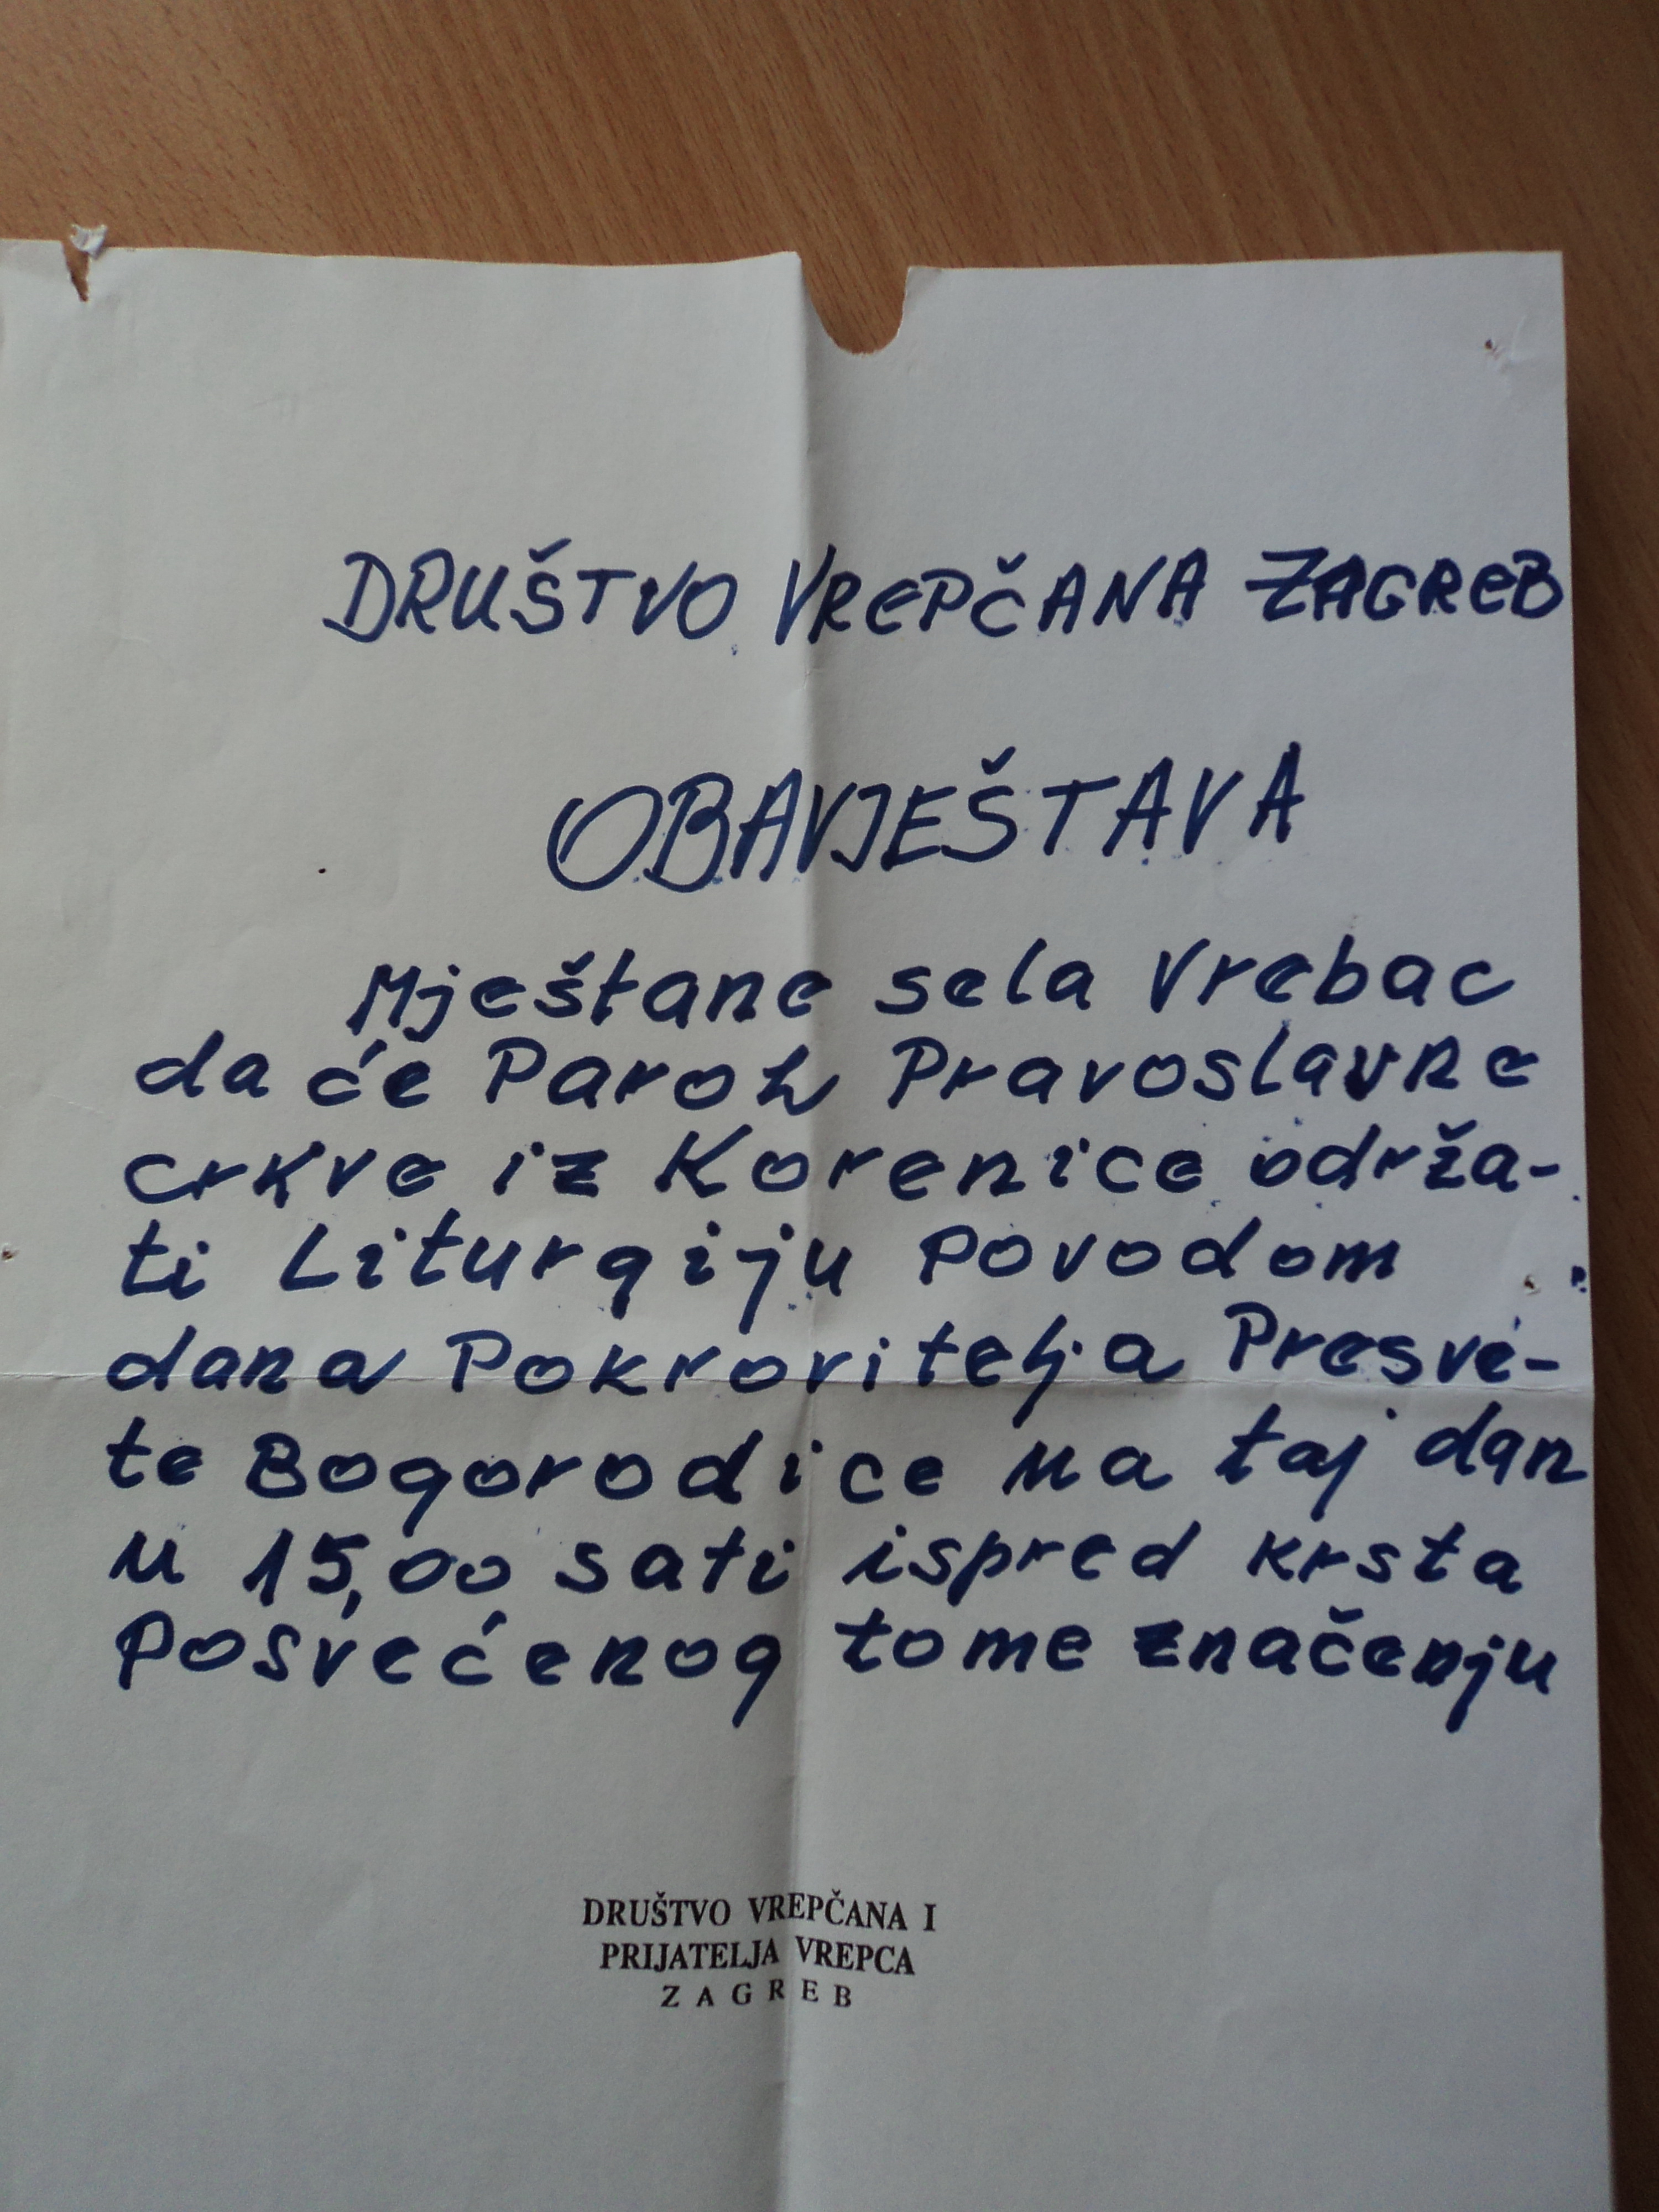 DRUŠTVO VREPČANA ZAGREB
OBAVJEŠTAVA
Mještane sela Vrebac
da će Paroh Pravoslavne
crkve iz Korenice održa-
ti Liturgiju Povodom
dana Pokrovitelja Presve-
te Bogorodice na taj dan
u 15,00 sati ispred krsta
Posvećenog tome značenju
DRUŠTVO VREPČANA I
PRIJATELJA VREPCA
ZAGREB